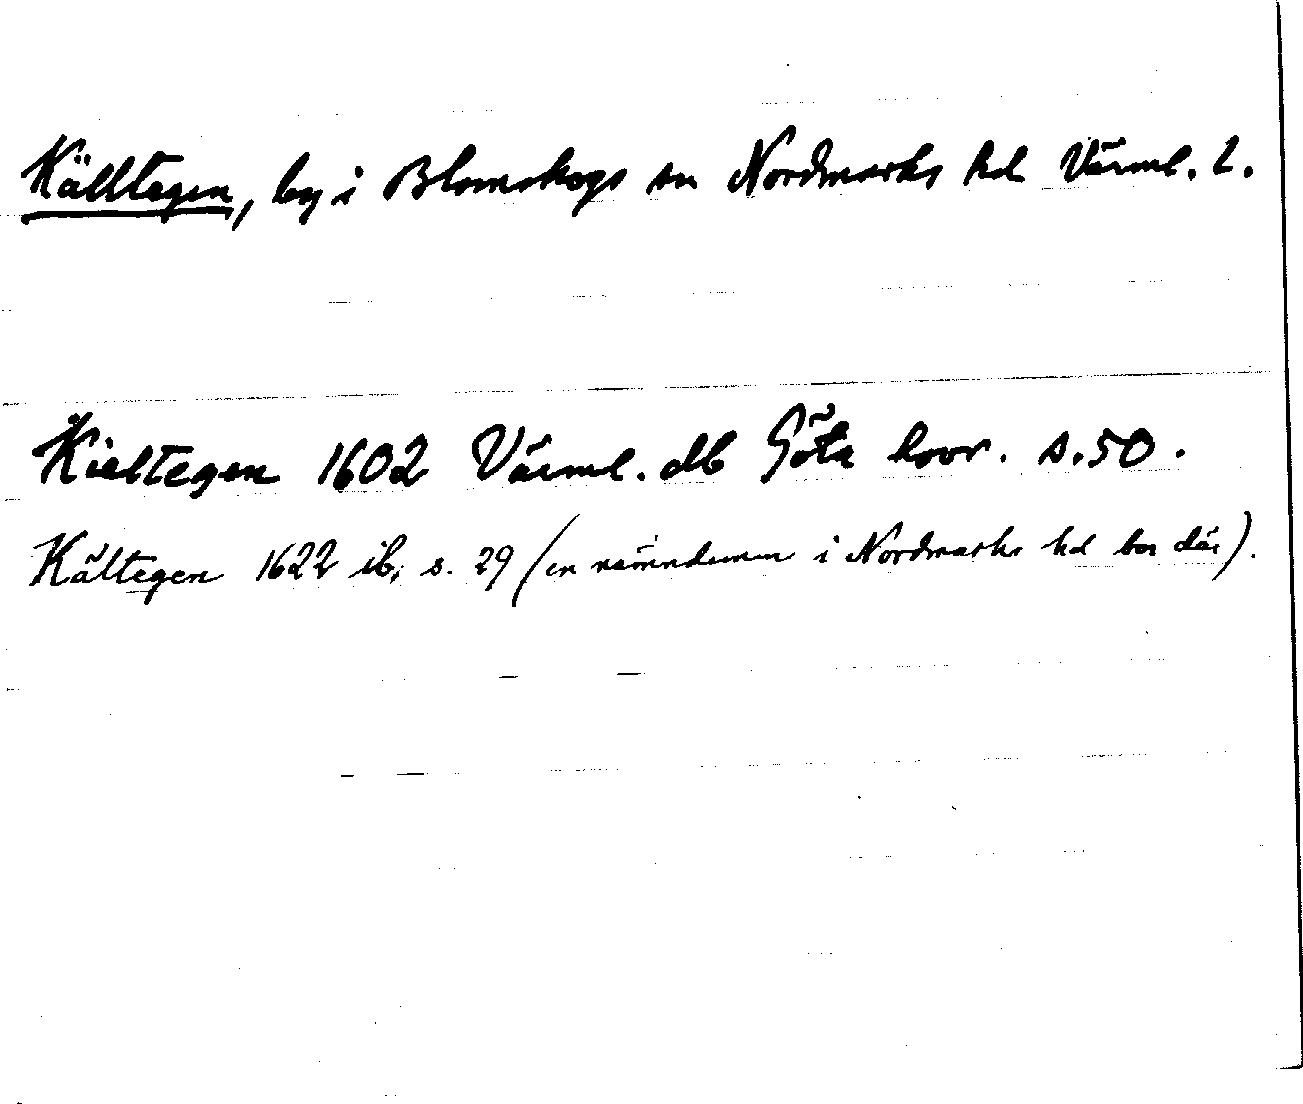 Källtegen, by i Blomskogs sn Nordmarks hd Värml. l.
Kieltegen 1602 Värml. db Göta hovr. s. 50.
Kältegen 1622 ib. s. 29 (en nämndeman i Nordmarks hd bor där).